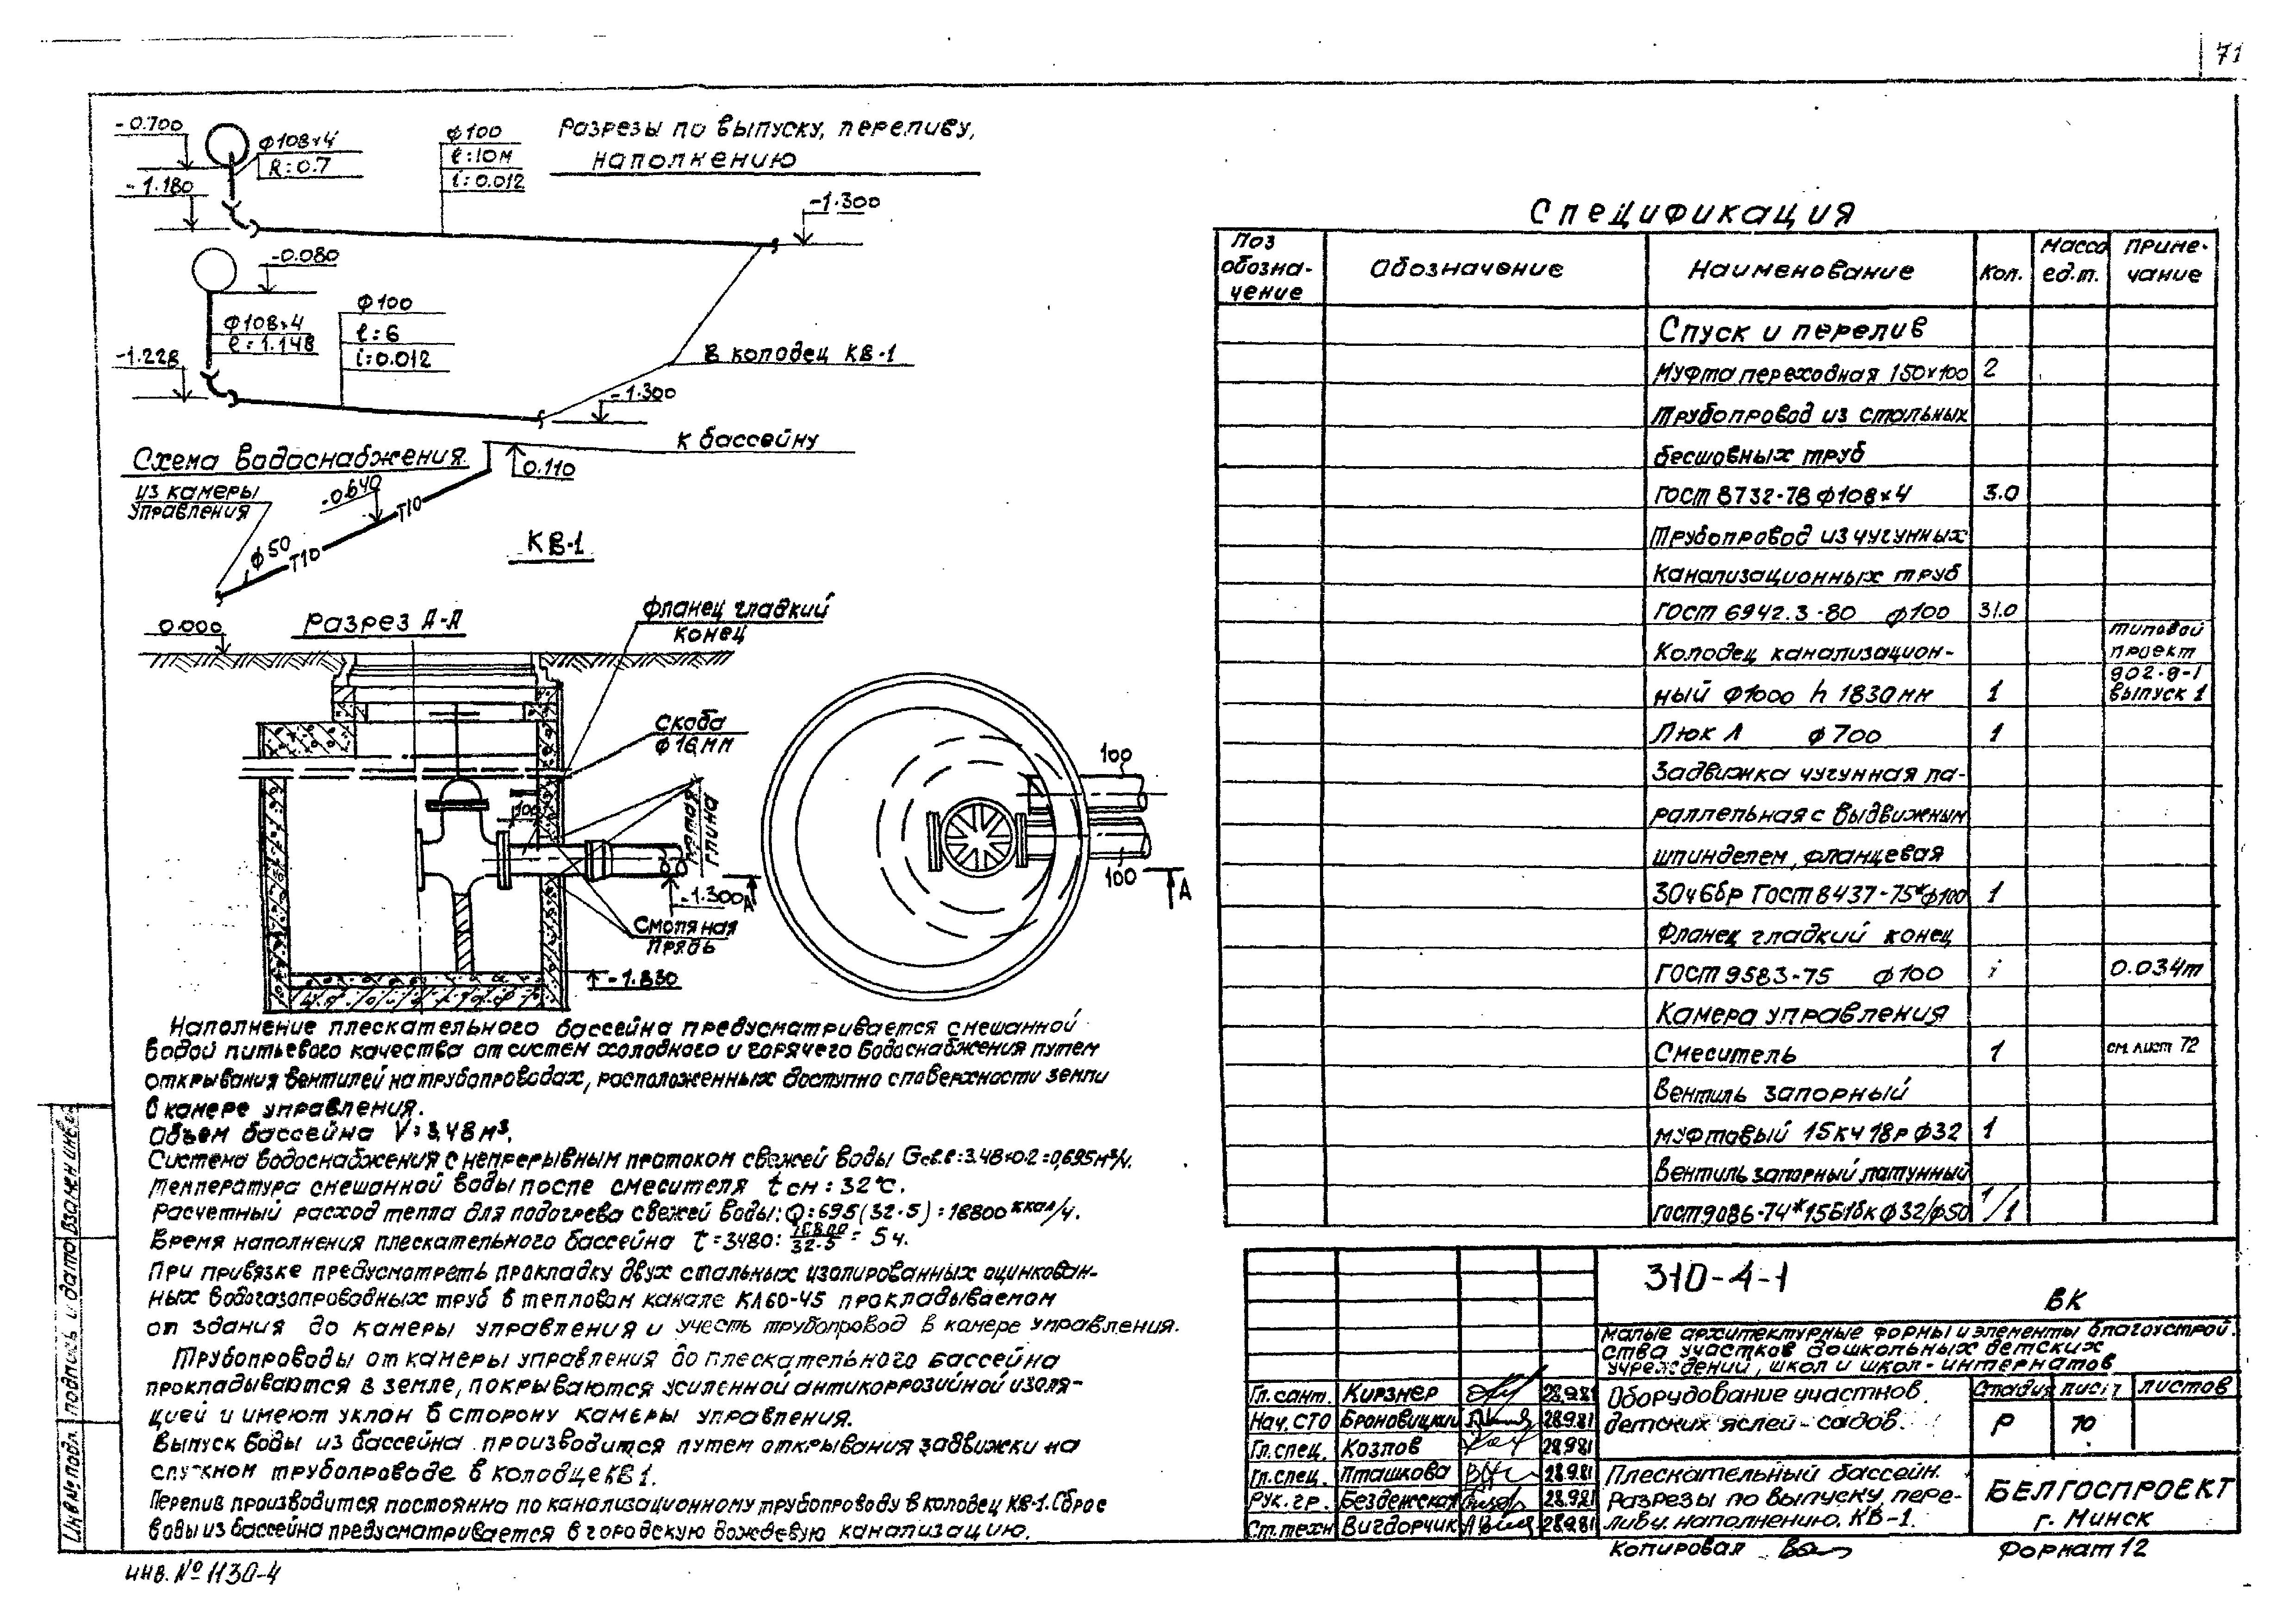 71
Разрезы по выпуску, переливу,
наполнению
-0.700
ф108×4
R=0.7
-1.180
ф100
ℓ=10м
i=0.012
-1.300
-0.080
ф108×4
ℓ=1.148
-1.228
ф100
ℓ=6
i=0.012
-1.300
В колодец КВ-1
Схема водоснабжения
к бассейну
0.110
из камеры
управления
-0.640
Т10
Т10
ф50
КВ-1
Разрез А-А
0.000
фланец гладкий
конец
скоба
ф16мм
100
мятая
глина
-1.300
А
смоляная
прядь
-1.830
100
100
А
Наполнение плескательного бассейна предусматривается смешанной
водой питьевого качества от систем холодного и горячего водоснабжения путем
открывания вентилей на трубопроводах, расположенных доступно с поверхности земли
в камере управления.
Объем бассейна V=3,48м³.
Система водоснабжения с непрерывным протоком свежей воды Gсв.в=3.48×0.2=0,695м³/ч.
Температура смешанной воды после смесителя tсм=32°С.
Расчетный расход тепла для подогрева свежей воды: Q=695(32-5)=18800 ккал/ч.
Время наполнения плескательного бассейна t=3480: 18800/32-5 = 5ч.
При привязке предусмотреть прокладку двух стальных изолированных оцинкован-
ных водогазопроводных труб в тепловом канале КЛ60-45 прокладываемом
от здания до камеры управления и учесть трубопровод в камере управления.
Трубопроводы от камеры управления до плескательного бассейна
прокладываются в земле, покрываются усиленной антикоррозийной изоля-
цией и имеют уклон в сторону камеры управления.
Выпуск воды из бассейна производится путем открывания задвижки на
спускном трубопроводе в колодце КВ1.
Перелив производится постоянно по канализационному трубопроводу в колодец КВ-1. Сброс
воды из бассейна предусматривается в городскую дождевую канализацию.
Спецификация
Поз обозна- чение | Обозначение | Наименование | Кол. | Масса ед.т. | Приме- чание
Спуск и перелив
Муфта переходная 150×100 2
Трубопровод из стальных
бесшовных труб
ГОСТ 8732-78 ф108×4 3.0
Трубопровод из чугунных
канализационных труб
ГОСТ 6942.3-80 ф100 31.0
Колодец канализацион-
ный ф1000 h 1830мм 1
типовой
проект
902-9-1
выпуск 1
Люк Л ф700 1
Задвижка чугунная па-
раллельная с выдвижным
шпинделем, фланцевая
30ч6бр ГОСТ 8437-75* ф100 1
Фланец гладкий конец
ГОСТ 9583-75 ф100 1 0.034т
Камера управления
Смеситель 1 см. лист 72
Вентиль запорный
муфтовый 15кч18р ф32 1
Вентиль запорный латунный
ГОСТ 9086-74* 15Б1бк ф32/ф50 1/1
310-4-1
ВК
Малые архитектурные формы и элементы благоустрой-
ства участков дошкольных детских
учреждений, школ и школ-интернатов
Гл.сант. Кирзнер 28.9.81
Нач.СТО Броновицкий 28.9.81
Гл.спец. Козлов 28.9.81
Гл.спец. Пташкова 28.9.81
Рук.гр. Безденежская 28.9.81
Ст.техн Вигдорчик 28.9.81
Оборудование участков
детских яслей-садов.
Стадия лист листов
Р 70
Плескательный бассейн.
Разрезы по выпуску, пере-
ливу, наполнению. КВ-1.
БЕЛГОСПРОЕКТ
г. Минск
Копировал
Формат 12
Инв№подл. подпись и дата Взамен инв.
инв. № 1130-4